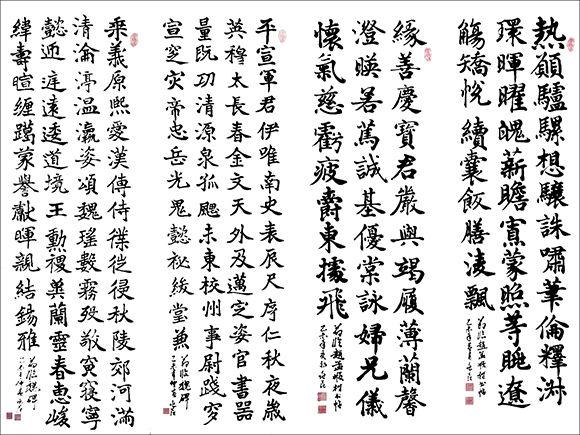 熱願驢騾想驤誅嘯筆倫釋
環暉曜魄薪瞻寔蒙照等眺遼
觴矯悅續囊飯膳凌飄
緣善慶寶君嚴與竭履薄蘭馨
澄暎若篤誠基優棠詠婦兄儀
懷氣慈虧疲爵東據飛
平宣軍君伊唯南史表辰尺序仁秋夜歲
英穆太長春金文天外及邁定姿官書器
量既功清源泉孤颸未東校州事尉踐穸
宣芝灾帝忠岳光鬼懿祕綏堂兼
乘義原熙愛漢傅侍從侵秋陵郊河滿
清淪渟温瀛姿頌魏瑤數霧敬寅寢寧
懿遠逵道境王勳禝葉蘭靈春惠峻
緯壽暄纏蒙譽獻暉親結錫雅